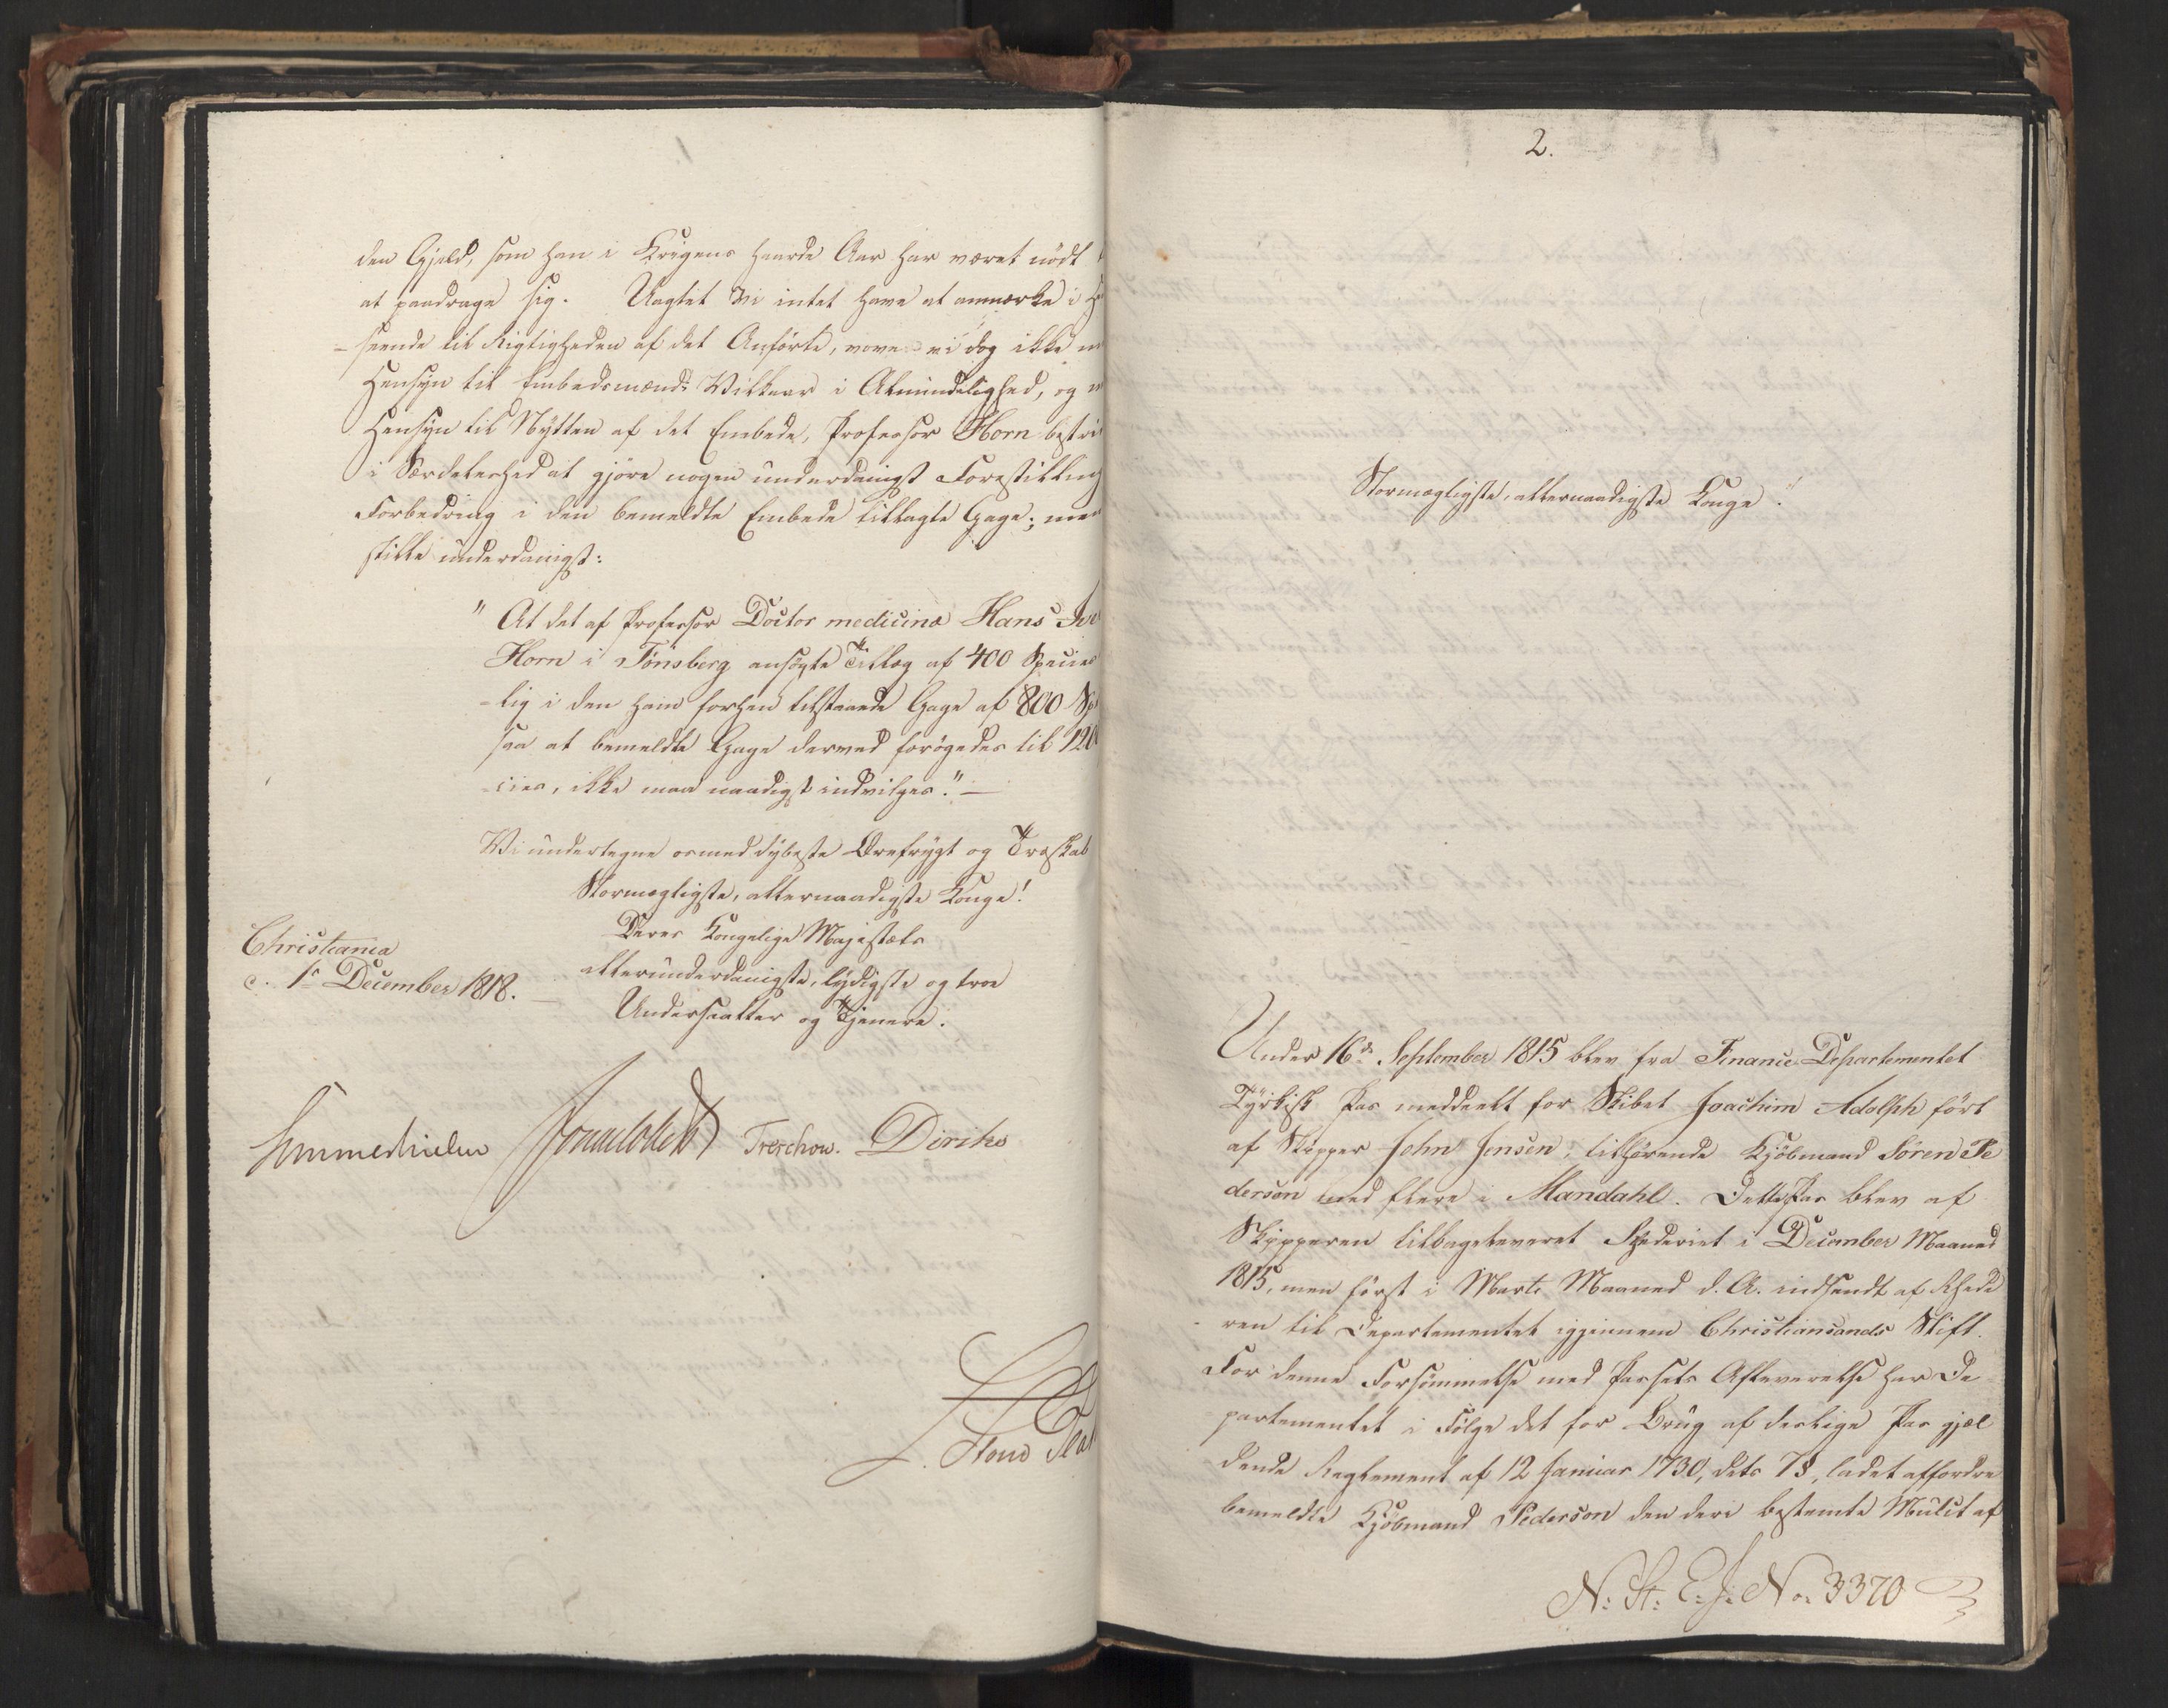 den Gjeld, som han i Krigens haarde Aar har været nödt
at paadrage sig. Uagtet Vi intet have at anmærke i
-seende til Rigtigheden af det Anförte, vove vi dog ikke
Hensyn til Embedsmænds Vilkaar i Almindelighed, og
Hensyn til Nytten af det Embede, Professor Horn
i Særdeleshed at gjöre nogen underdanigst Forestilling
Forbedring i den bemeldte Embede tillagte Gage; men
stille underdanigst:
"At det af Professor Doctor medicinæ Hans
Horn i Tönsberg ansögte Tillæg af 400 Species
-lig i den ham forhen tilstaaede Gage af 800
saa at bemeldte Gage derved forögedes til
-cies, ikke maa naadigst indvilges." —
Vi undertegne os med dybeste Ærefrygt og Troskab
Stormægtigste, allernaadigste Konge!
Deres Kongelige Majestæts
allerunderdanigste, lydigste og troe
Undersaatter og Tjenere.
Christiania
d. 1ste December 1818.
Sommerhielm Treschow. Diriks
2.
Stormægtigste, allernaadigste Konge!
Under 16de September 1815 blev fra Finance-Departementet
Tyrkisk Pas meddeelt for Skibet Joachim Adolph fört
af Skipper John Jensen, tilhörende Kjöbmand Sören Pe
derson med flere i Mandahl. Dette Pas blev af
Skipperen tilbageleveret Rhederiet i December Maaned
1815, men först i Marts Maaned d. A. indsendt af Rhede
-ren til Departementet igjennem Christiansands Stift.
For denne Forsömmelse med Passets Afleverelse har De
partementet i Fölge det for Brug af deslige Pas gjæl
dende Reglement af 12 Januar 1730, dets 7 §, ladet affordre
bemeldte Kjöbmand Pederson den deri bestemte Mulct af
N: St: E: J: No. 3370